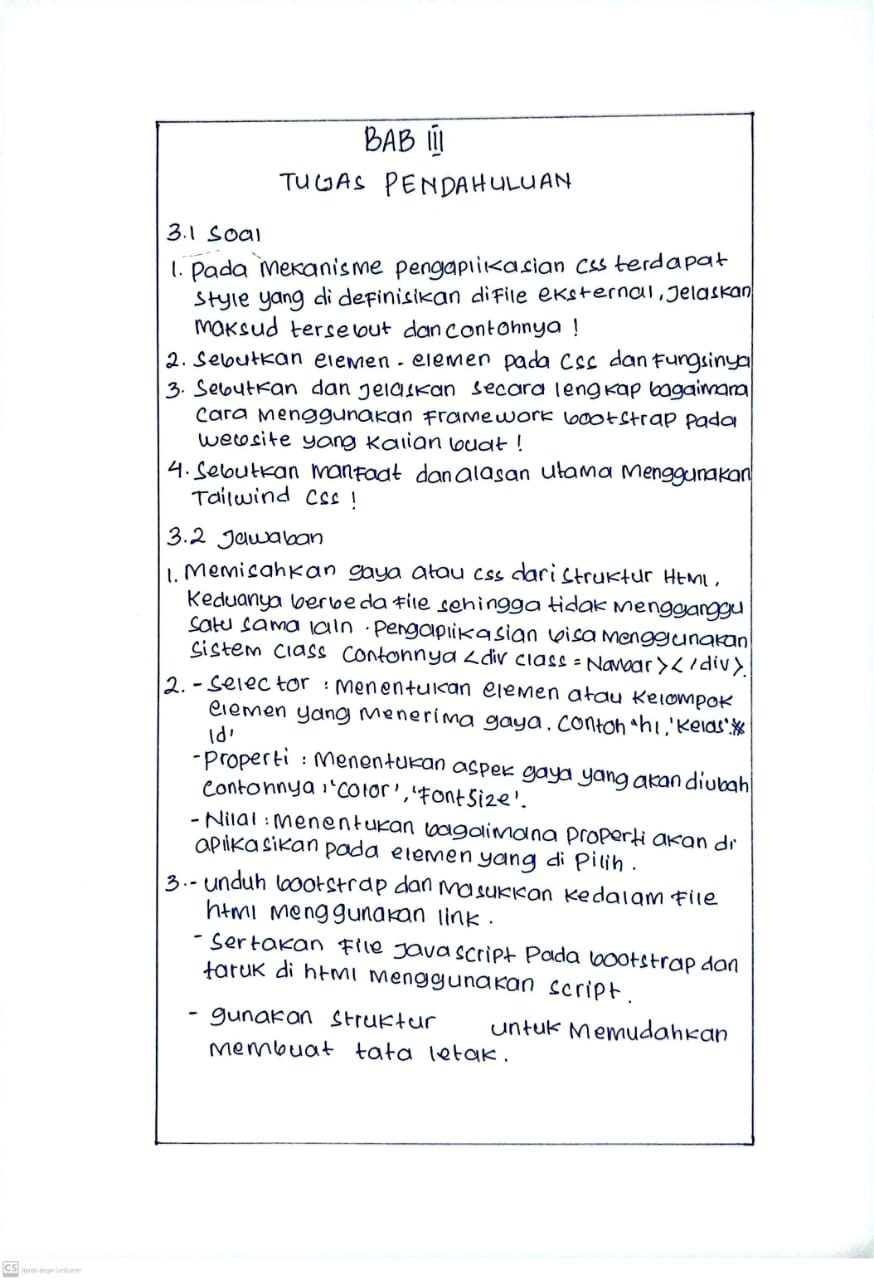 BAB III
TUGAS PENDAHULUAN
3.1 Soal
1. Pada Mekanisme pengaplikasian CSS terdapat
style yang di definisikan difile eksternal, Jelaskan
Maksud tersebut dan contohnya !
2. Sebutkan elemen-elemen pada CSS dan fungsinya
3. Sebutkan dan Jelaskan secara lengkap bagaimana
cara menggunakan framework bootstrap pada
website yang kalian buat !
4. Sebutkan manfaat dan alasan utama menggunakan
Tailwind CSS !
3.2 Jawaban
1. Memisahkan gaya atau css dari struktur Html,
Keduanya berbeda file sehingga tidak mengganggu
satu sama lain. Pengaplikasian bisa menggunakan
sistem class contohnya <div class = Navbar></div>.
2. - Selector : Menentukan elemen atau kelompok
elemen yang menerima gaya. Contoh 'h1,'kelas'.
id'
- Properti : Menentukan aspek gaya yang akan diubah
Contohnya : 'color', 'fontsize'.
- Nilai : Menentukan bagaimana properti akan di
aplikasikan pada elemen yang di pilih.
3. - unduh bootstrap dan masukkan kedalam file
html menggunakan link.
- Sertakan file Javascript pada bootstrap dan
taruk di html menggunakan script.
- gunakan struktur untuk memudahkan
membuat tata letak.
CS